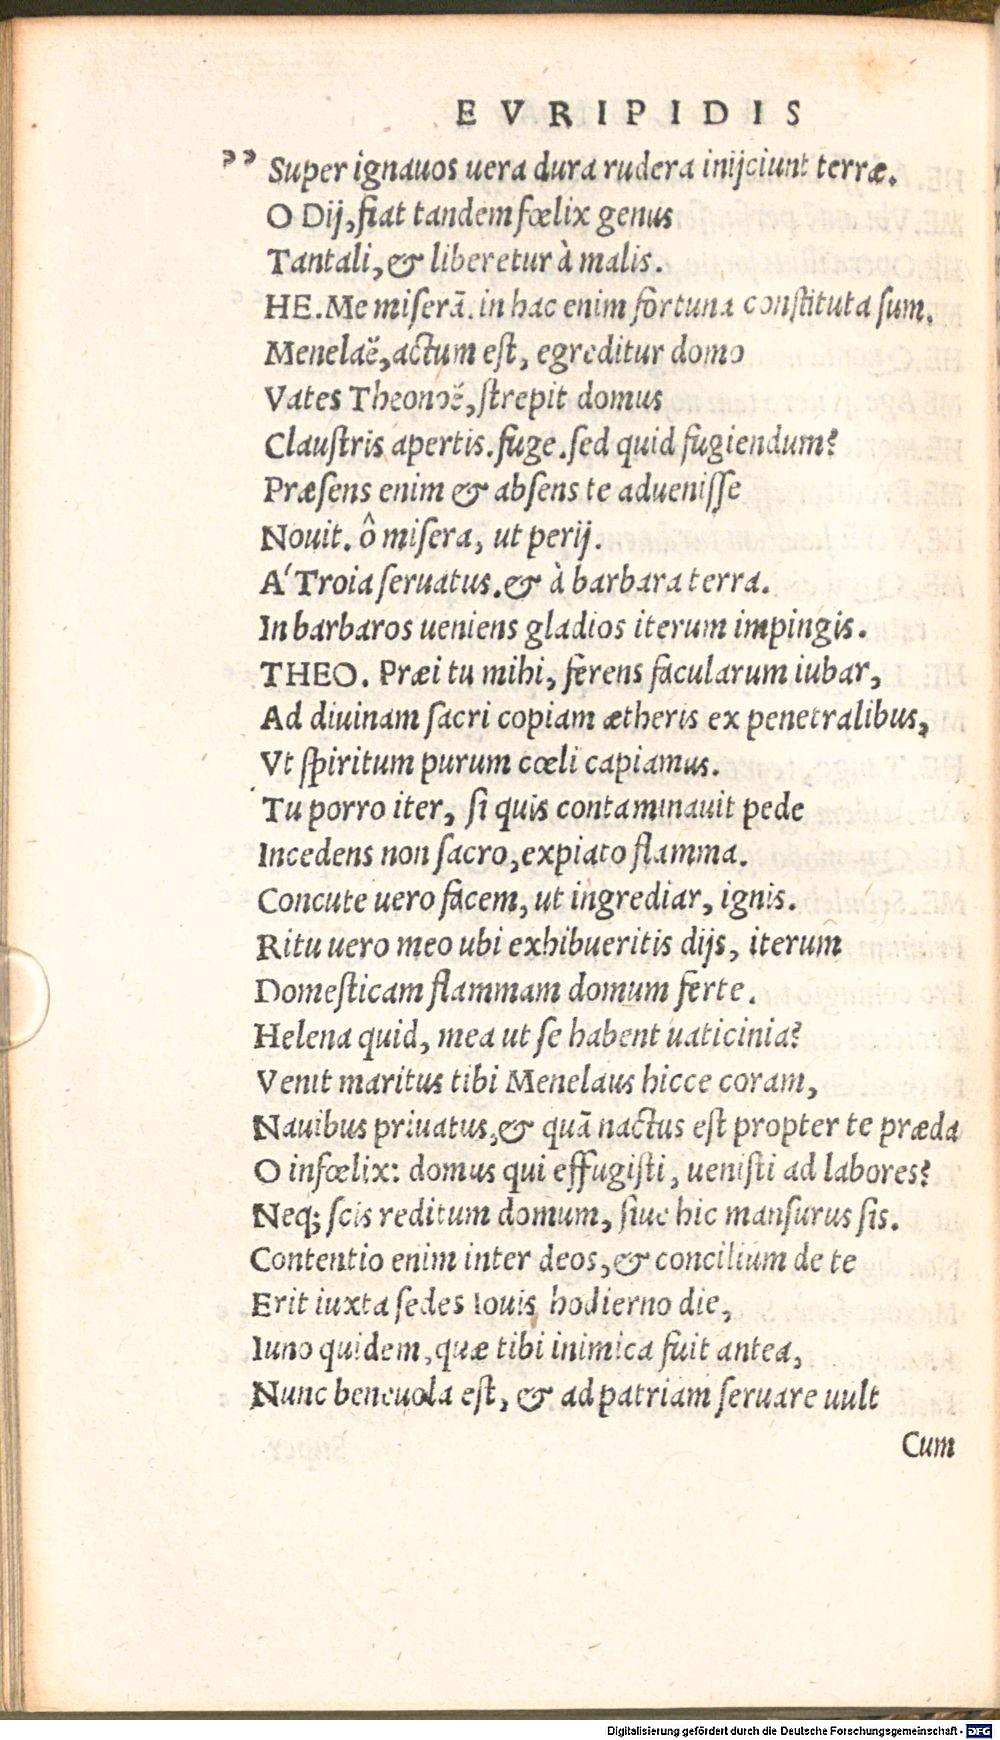 EVRIPIDIS
„ Super ignauos uera dura rudera inijciunt terræ.
O Dij, fiat tandem fœlix genus
Tantali, & liberetur à malis.
HE. Me miserā. in hac enim fortuna constituta sum.
Menelaë, actum est, egreditur domo
Vates Theonoë, strepit domus
Claustris apertis. fuge. sed quid fugiendum?
Præsens enim & absens te aduenisse
Nouit. ô misera, ut perij.
A' Troia seruatus. & à barbara terra.
In barbaros ueniens gladios iterum impingis.
THEO. Præi tu mihi, ferens facularum iubar,
Ad diuinam sacri copiam ætheris ex penetralibus,
Vt spiritum purum cœli capiamus.
Tu porro iter, si quis contaminauit pede
Incedens non sacro, expiato flamma.
Concute uero facem, ut ingrediar, ignis.
Ritu uero meo ubi exhibueritis dijs, iterum
Domesticam flammam domum ferte.
Helena quid, mea ut se habent uaticinia?
Venit maritus tibi Menelaus hicce coram,
Nauibus priuatus, & quā nactus est propter te præda
O infœlix: domus qui effugisti, uenisti ad labores?
Neq; scis reditum domum, siue hic mansurus sis.
Contentio enim inter deos, & concilium de te
Erit iuxta sedes Iouis hodierno die,
Iuno quidem, quæ tibi inimica fuit antea,
Nunc beneuola est, & ad patriam seruare uult
Cum
Digitalisierung gefördert durch die Deutsche Forschungsgemeinschaft - DFG